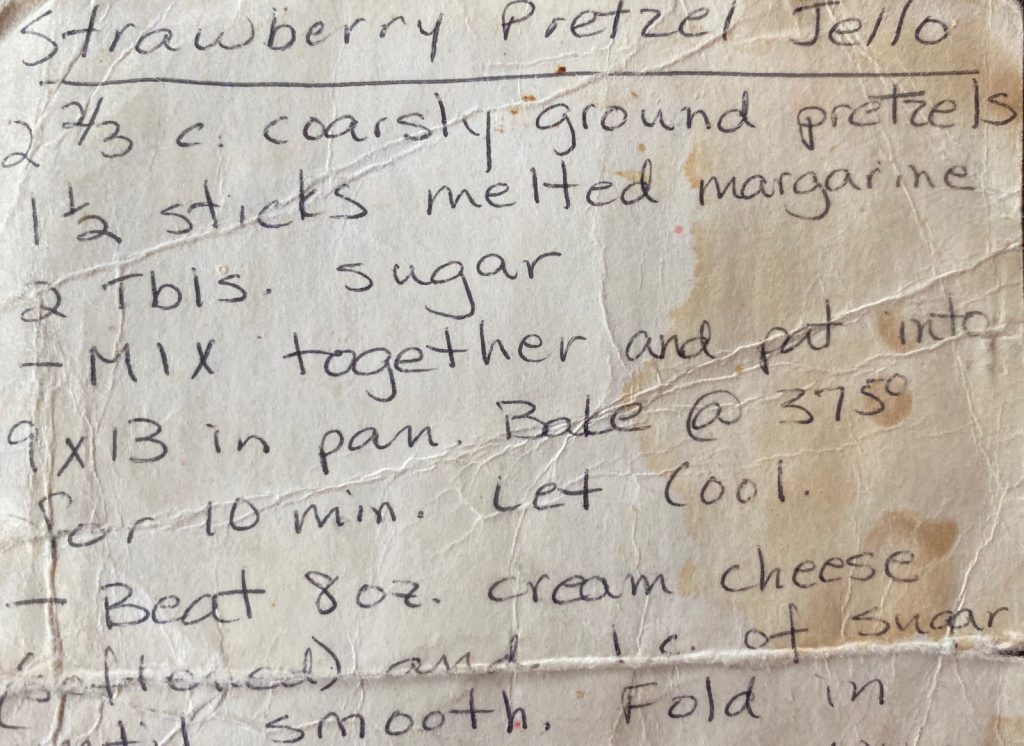 Strawberry Pretzel Jello
2 2/3 c. coarsly ground pretzels
1 1/2 sticks melted margarine
2 Tbls. sugar
- MIX together and pat into
9 x 13 in pan. Bake @ 375°
for 10 min. Let Cool.
- Beat 8 oz. cream cheese
(softened) and 1 c. of sugar
until smooth. Fold in